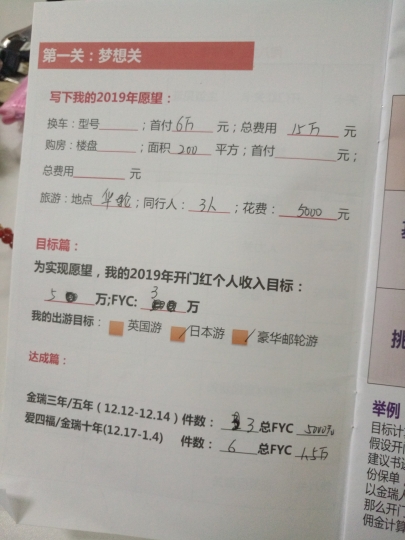 第一关：梦想关
写下我的2019年愿望：
换车：型号______；首付 6万 元；总费用 15万 元
购房：楼盘______；面积 200 平方；首付______元；
总费用______元
旅游：地点 ；同行人： 3人 ；花费： 5000 元
目标篇：
为实现愿望，我的2019年开门红个人收入目标：
万；FYC: 3 万
我的出游目标： 英国游 日本游 豪华邮轮游
达成篇：
金瑞三年/五年（12.12-12.14）件数： 3 总FYC
爱四福/金瑞十年(12.17-1.4) 件数： 6 总FYC 1.5万
挑
举例
目标计
假设开
建议书
份保单
以金瑞
那么开门
佣金计算